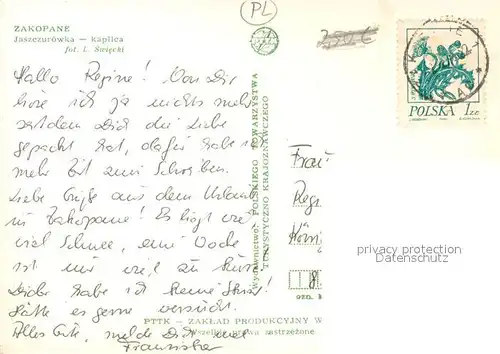 ZAKOPANE
Jaszczurówka — kaplica
fot. L. Święcki
PL
350 €
Hallo Regine! Von Dir
höre ich ja nichts mehr
seitdem Dich die Liebe
gepackt hat, dafür habe ich
mehr Zeit zum Schreiben.
Liebe Grüße aus dem Urlaub
in Zakopane! Es liegt
viel Schnee, eine Woche
ist mir viel zu kurz.
Leider habe ich keine
Hätte es gerne versucht.
Alles Gute, melde Dich mal
Franziska
Wydawnictwo: POLSKIEGO TOWARZYSTWA
TURYSTYCZNO KRAJOZNAWCZEGO
POLSKA 1 ZŁ
Frau
Regi
8
PTTK — ZAKŁAD PRODUKCYJNY W
Wszelkie prawa zastrzeżone
privacy protection
Datenschutz